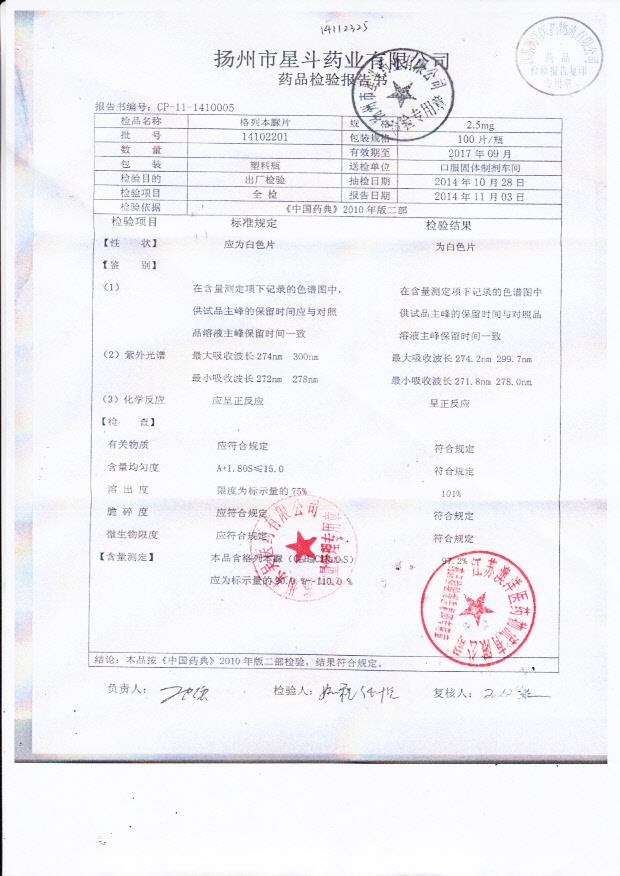 14112325
扬州市星斗药业有限公司
药品检验报告书
药品
检验报告复印
专用章
检验专用章
报告书编号：CP-11-1410005
检品名称 格列本脲片 规 格 2.5mg
批 号 14102201 包装规格 100片/瓶
数 量 有效期至 2017年09月
包 装 塑料瓶 送检单位 口服固体制剂车间
检验目的 出厂检验 抽检日期 2014年10月28日
检验项目 全 检 报告日期 2014年11月03日
检验依据 《中国药典》2010年版二部
检验项目 标准规定 检验结果
【性 状】 应为白色片 为白色片
【鉴 别】
（1） 在含量测定项下记录的色谱图中， 在含量测定项下记录的色谱图中
供试品主峰的保留时间应与对照 供试品主峰的保留时间与对照品
品溶液主峰保留时间一致 溶液主峰保留时间一致
（2）紫外光谱 最大吸收波长274nm 300nm 最大吸收波长274.2nm 299.7nm
最小吸收波长272nm 278nm 最小吸收波长271.8nm 278.0nm
（3）化学反应 应呈正反应 呈正反应
【检 查】
有关物质 应符合规定 符合规定
含量均匀度 A+1.80S≤15.0 符合规定
溶 出 度 限度为标示量的75% 101%
脆 碎 度 应符合规定 符合规定
微生物限度 应符合规定 符合规定
【含量测定】 本品含格列本脲 97.2%
应为标示量的90.0％~110.0％
江苏澳洋医药物流有限公司
结论：本品按《中国药典》2010年版二部检验，结果符合规定。
负责人： 检验人： 复核人：